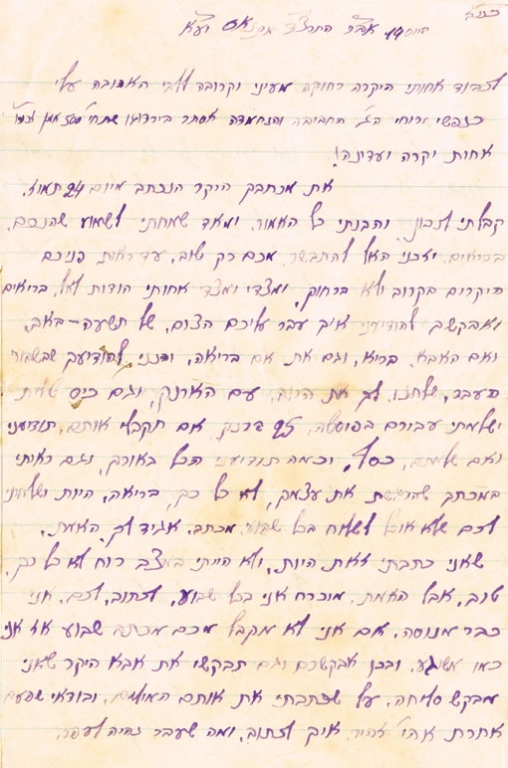 בע"ה
יום 14 אב התרצ"
לכבוד אחותי היקרה רחוקה מעיני וקרובה ללבי האהובה עלי
כנפשי ורוחי הג' החביבה והנחמדה אסתר שתחי'
אחות יקרה ועדינה!
את מכתבך היקר הנכתב מיום 24 תמוז,
קבלתי לנכון והבנתי כל האמור, ומאד שמחתי לשמוע שהנכם,
בריאים, יזכני האל להתבשר מכם רק טוב, עד ראות פניכם
היקרים בקרוב ולא ברחוק, ומצדי ומצד אחותי הודות לאל, בריאים
ואבקשך להודיעני איך עבר עליכם הצום, של תשעה-באב,
ואם האבא, בריא, וגם את אם בריאה, והנני להודיעך שבשבוע
העבר, שלחנו לך את עם הארנק, וגם כיס
ושלמתי עבורם בפוסטה, 25 פרנק, אם תקבלי אותם, תודיעני
ואם שלמתם, כסף, וכמה תודיעני הכל באורך, וגם ראיתי
במכתב את עצמך, לא כל כך, בריאה, היות ושלחתי
לכם שלא אוכל לשלוח בכל שבוע, מכתב, אגיד לך, האמת,
שאני כתבתי זאת היות, ולא הייתי במצב רוח לא כל כך,
טוב, אבל האמת, מוכרח אני בכל שבוע, לכתוב, לכם, אני
כבר מנוסה, אם אני לא מקבל מכם מכתב שבוע אז אני
כמו משוגע, ובכן אבקשכם וגם תבקשי את אבא היקר שאני
מבקש סליחה, על שכתבתי את אותם המילים, ובודאי שפעם
אחרת איך לכתוב, ומה שעבר נהיה לעפר,